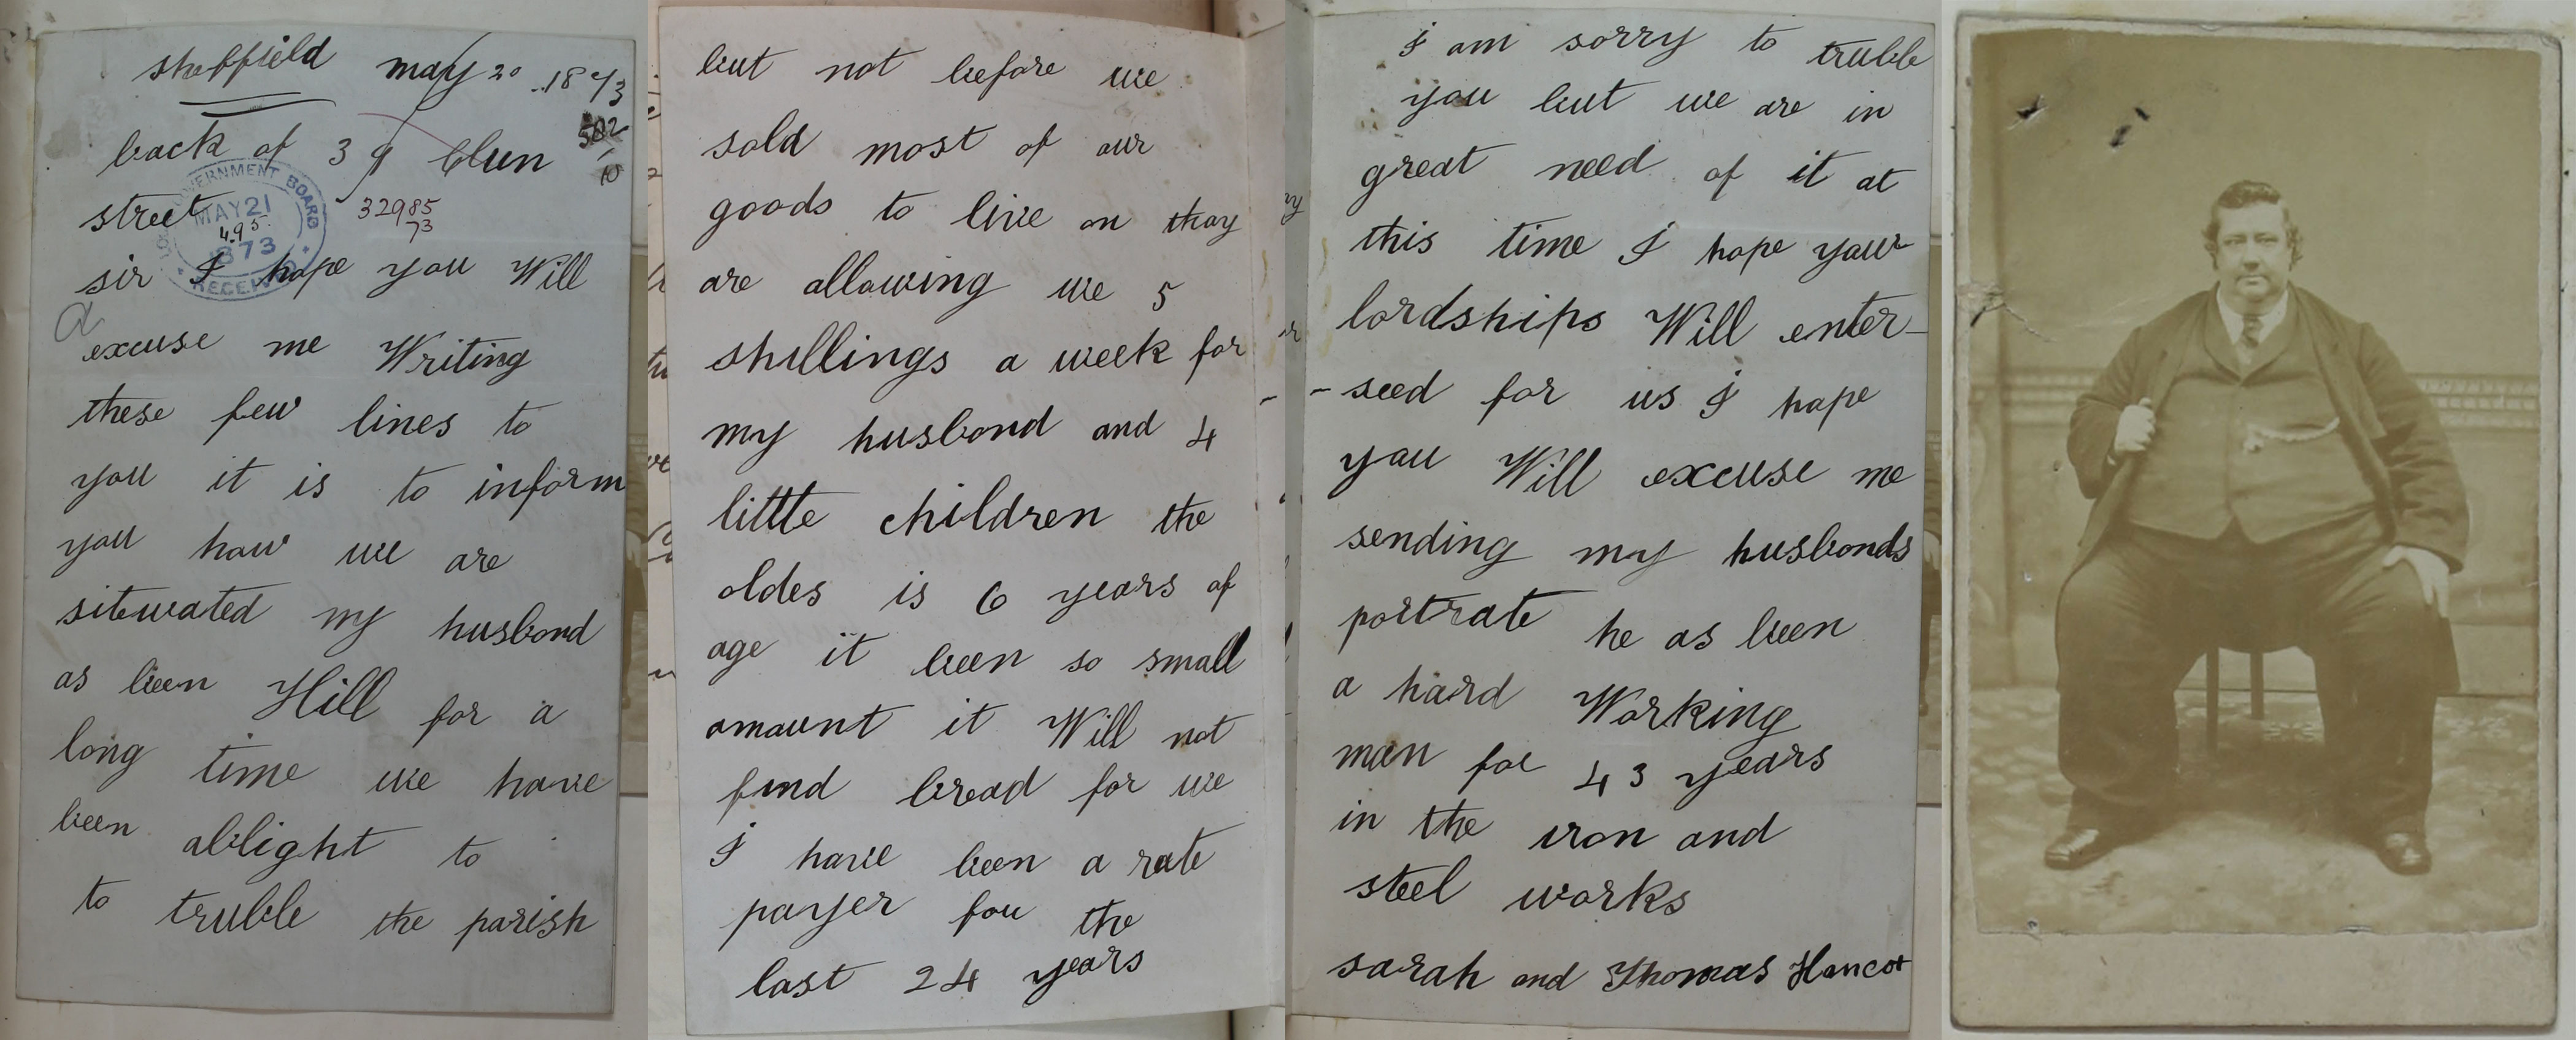 sheffield may 20 1873
back of 39 Clun
street
502
10
LOCAL GOVERNMENT BOARD
MAY 21
495
1873
RECEIVED
32985
73
sir I hope you Will
excuse me Writing
these few lines to
you it is to inform
you how we are
sitewated my husbond
as been Hill for a
long time we have
been ablight to
to truble the parish
but not before we
sold most of our
goods to live on thay
are allowing we 5
shillings a week for
my husbond and 4
little children the
oldes is 6 years of
age it been so small
amount it Will not
find bread for we
I have been a rate
payer fou the
last 24 years
I am sorry to truble
you but we are in
great need of it at
this time I hope your
lordships Will enter-
-seed for us I hope
you Will excuse me
sending my husbonds
portrate he as been
a hard Working
man for 43 years
in the iron and
steel works
sarah and Thomas Hancot